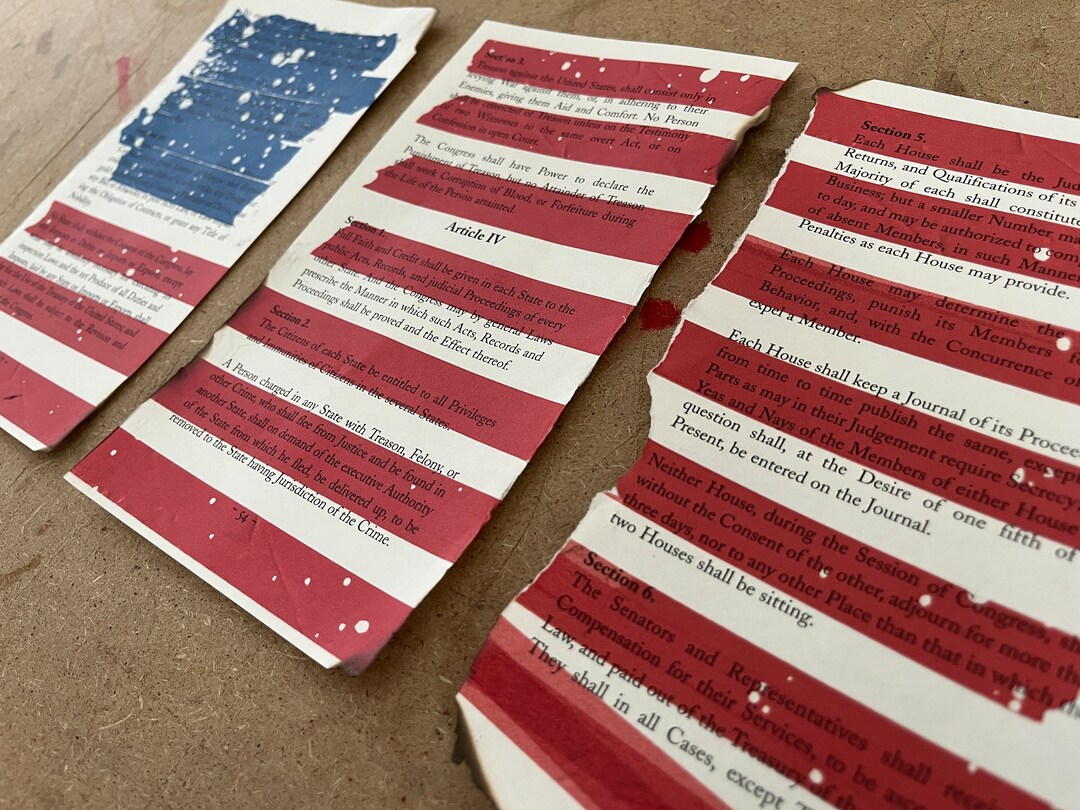 ing the Obligation of Contracts, or grant any Title of
Nobility.
No State shall, without the Consent of the Congress, lay
any Imposts or Duties on Imports or Exports, except
inspection Laws: and the net Produce of all Duties and
Imposts, laid by any State on Imports or Exports, shall
for the Use of the Treasury of the United States; and
Laws shall be subject to the Revision and
Congress.
Section 3.
Treason against the United States, shall consist only in
levying War against them, or, in adhering to their
Enemies, giving them Aid and Comfort. No Person
shall be convicted of Treason unless on the Testimony
of two Witnesses to the same overt Act, or on
Confession in open Court.
The Congress shall have Power to declare the
Punishment of Treason, but no Attainder of Treason
shall work Corruption of Blood, or Forfeiture during
the Life of the Person attained.
Article IV
Section 1.
Full Faith and Credit shall be given in each State to the
public Acts, Records, and judicial Proceedings of every
other State. And the Congress may by general Laws
prescribe the Manner in which such Acts, Records and
Proceedings shall be proved and the Effect thereof.
Section 2.
The Citizens of each State be entitled to all Privileges
and Immunities of Citizens in the several States.
A Person charged in any State with Treason, Felony, or
other Crime, who shall flee from Justice and be found in
another State, shall on demand of the executive Authority
of the State from which he fled, be delivered up, to be
removed to the State having Jurisdiction of the Crime.
- 54 -
Section 5.
Each House shall be the Jud
Returns, and Qualifications of its
Majority of each shall constitute
Business; but a smaller Number ma
to day, and may be authorized to com
of absent Members, in such Manner
Penalties as each House may provide.
Each House may determine the
Proceedings, punish its Members f
Behavior, and, with the Concurrence of
expel a Member.
Each House shall keep a Journal of its Procee
from time to time publish the same, except
Parts as may in their Judgement require Secrecy
Yeas and Nays of the Members of either House
question shall, at the Desire of one fifth of
Present, be entered on the Journal.
Neither House, during the Session of Congress, sh
without the Consent of the other, adjourn for more tha
three days, nor to any other Place than that in which
two Houses shall be sitting.
Section 6.
The Senators and Representatives shall rece
Compensation for their Services, to be as
Law, and paid out of the Treasury of the
They shall in all Cases, except T